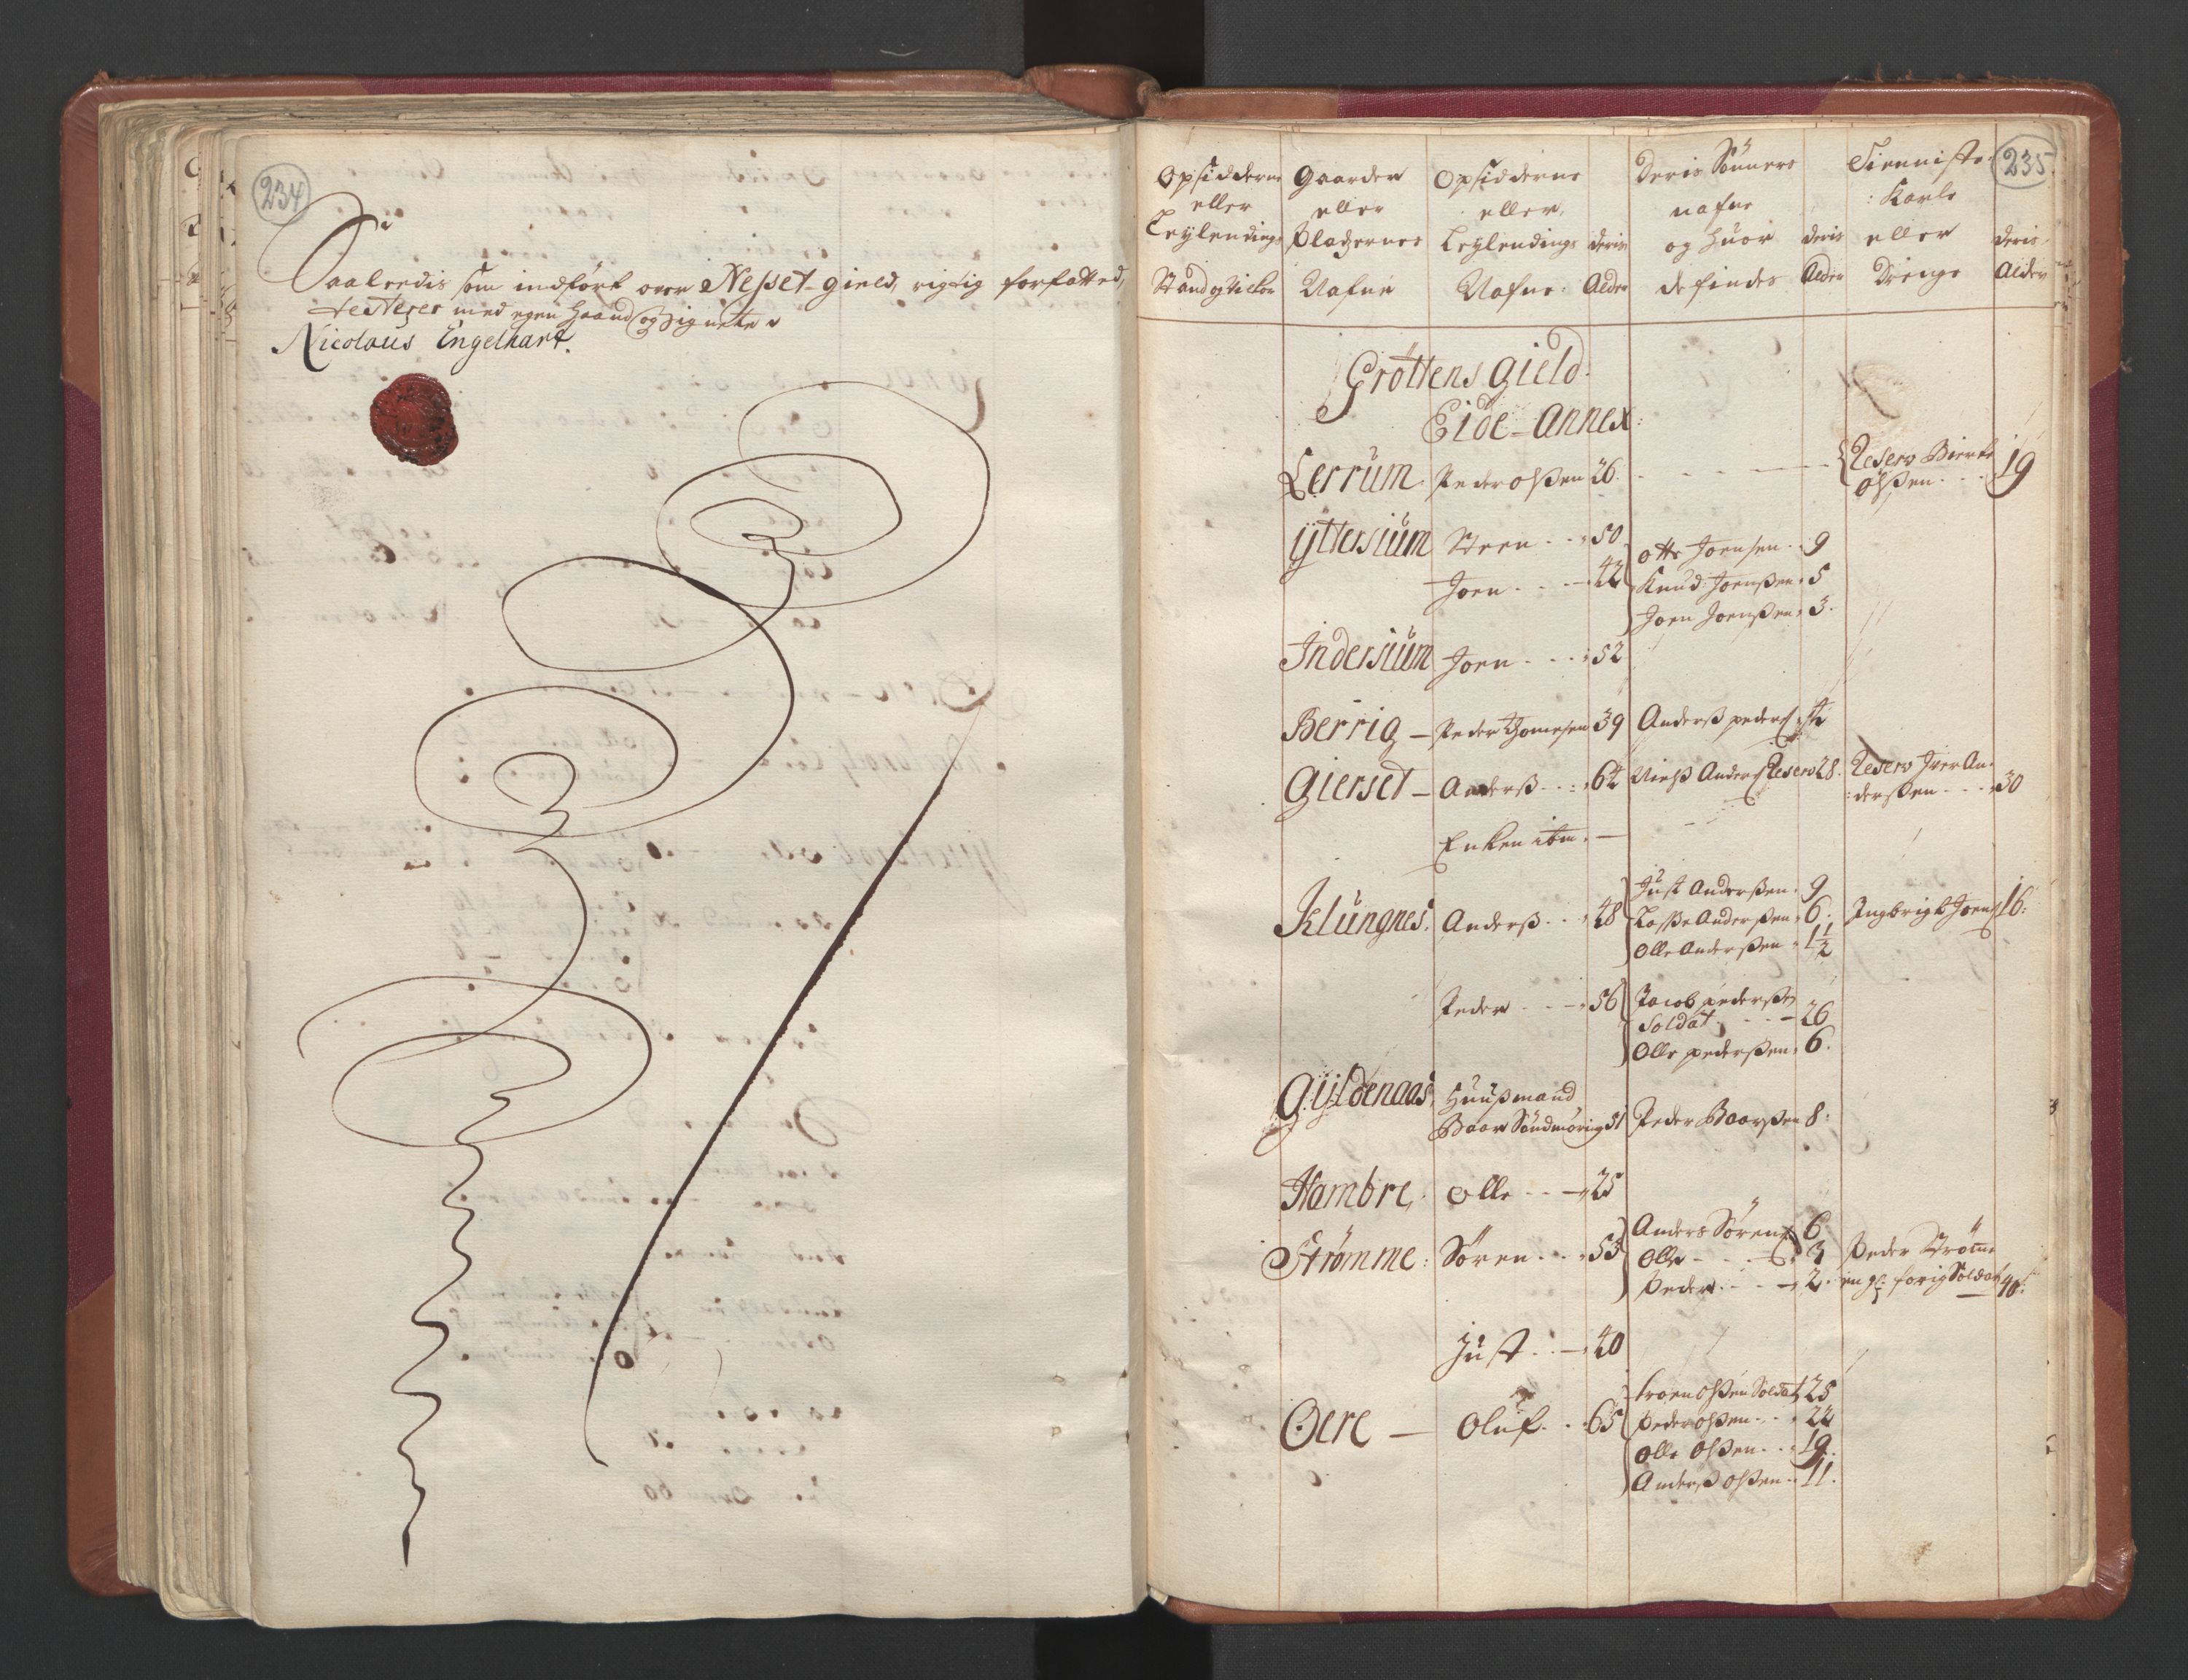 234
Saaledis som indført over Nesset-gield, rigtig forfatted,
testerer med egen Haand og Signete
Nicolaus Engelhart.
235
Opsiddernes eller Leylendings Stand og Vilkor
Gaarder eller Pladzernes Nafne
Opsidderne eller Leylendings Nafne
deris Alder
Deris Sønners nafne og huor de findes
deris Alder
Tienniste Karle eller Drenge
deris Alder
Grøttens gield
Eide-Annex
Lerrum Peder Olßen 26 Reserv Biercke
Olßen 19
Yttersium Steen 50
Joen 42 Otte Joensen 9
Knud Joenßen 5
Joen Joenßen 3
Indersium Joen 52
Berrig Peder Thomesen 39 Anderß peders ½
Gierset Anderß 64 Nielß Anders Reserv 28 Reserv Iver An-
derßen 30
Enken ibm
Klungnes Anderß 48 Just Anderßen 9
Laße Anderßen 6 Ingbrigt Joens 16
Olle Anderßen 1½
Peder 56 Jacob pederßen
Soldat 26
Olle pederßen 6
Gyldenaas Huußmand
Baar Søndmøring 51 Peder Baarßen 8
Hambre Olle 25
Strømme Søren 53 Anders Sørens 6
Olle 3 Peder Strøme
Peder 2 en gl: forig Soldat 40
Just 40
Oere Oluf 65 Troen Olßen Soldat 25
Peder Olßen 22
Olle Olßen 19
Anderß Olßen 11